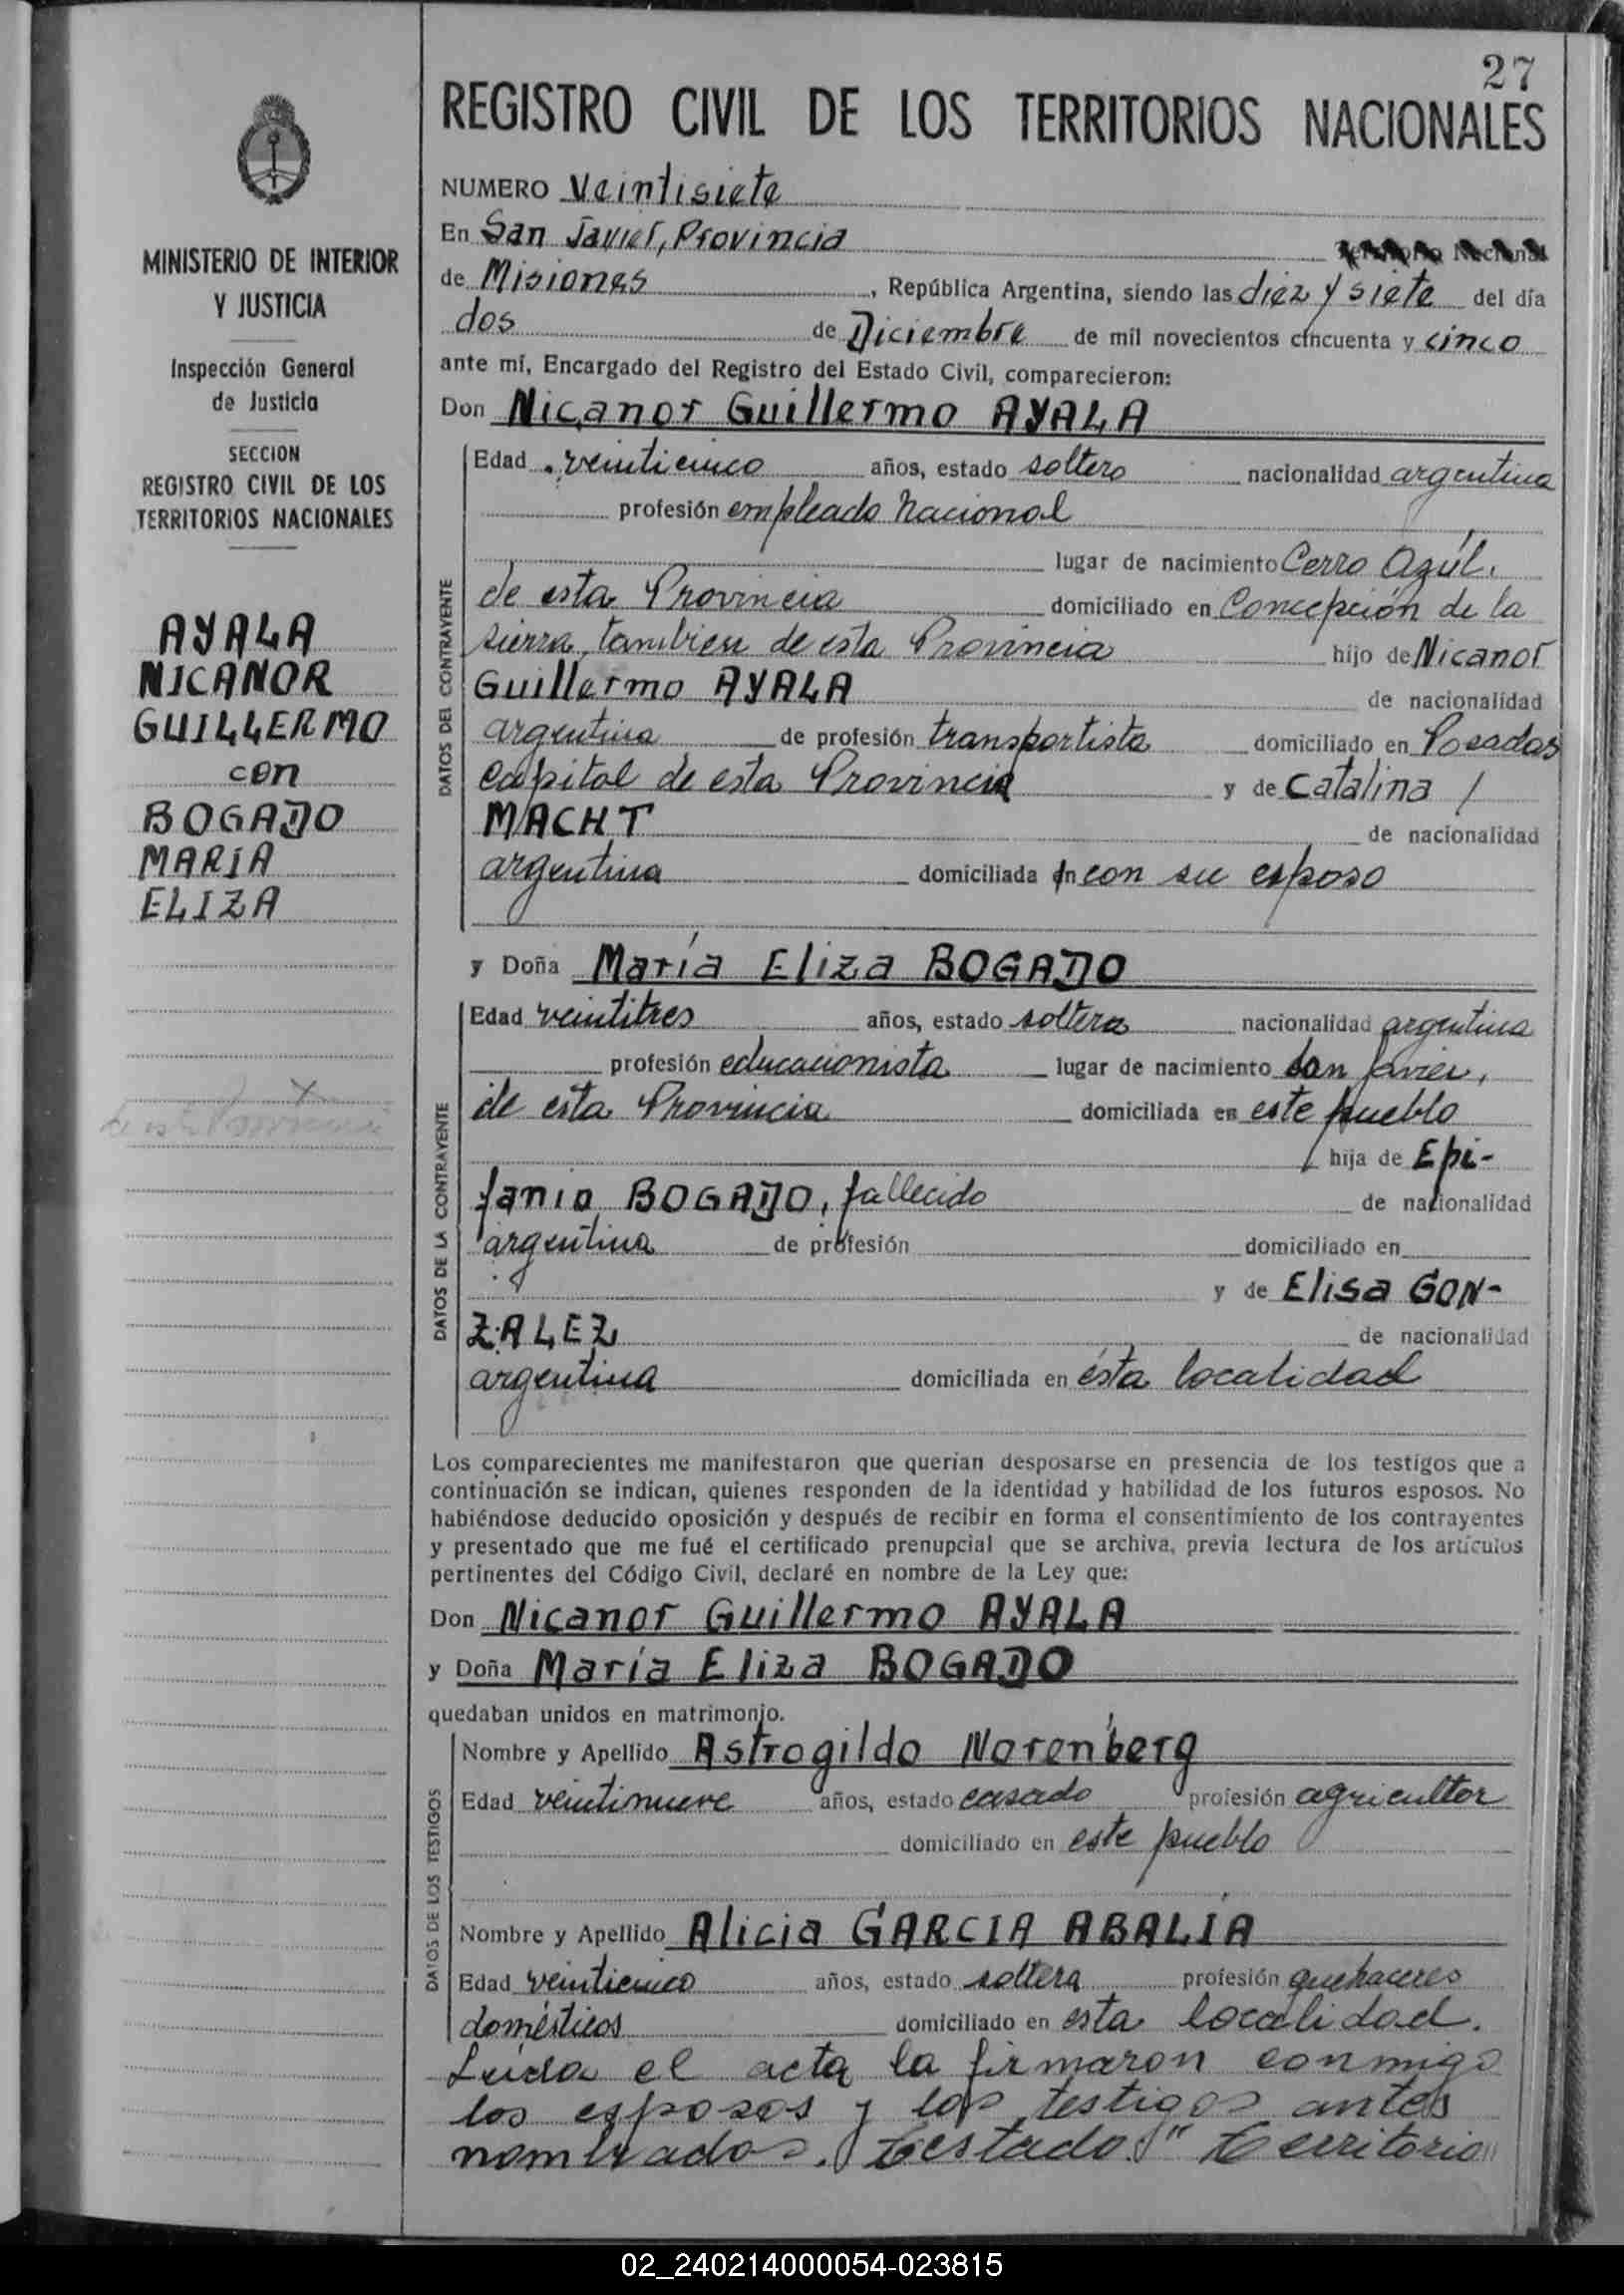 27
REGISTRO CIVIL DE LOS TERRITORIOS NACIONALES
MINISTERIO DE INTERIOR
Y JUSTICIA
Inspección General
de Justicia
SECCION
REGISTRO CIVIL DE LOS
TERRITORIOS NACIONALES
AYALA
NICANOR
GUILLERMO
con
BOGADO
MARIA
ELIZA
NUMERO Veintisiete
En San Javier, Provincia Territorio Nacional
de Misiones, República Argentina, siendo las diez y siete del día
dos de Diciembre de mil novecientos cincuenta y cinco
ante mí, Encargado del Registro del Estado Civil, comparecieron:
Don Nicanor Guillermo AYALA
DATOS DEL CONTRAYENTE
Edad veinticinco años, estado soltero nacionalidad argentina
profesión empleado nacional
lugar de nacimiento Cerro Azúl,
de esta Provincia domiciliado en Concepción de la
sierra, tambien de esta Provincia hijo de Nicanor
Guillermo AYALA de nacionalidad
argentina de profesión transportista domiciliado en Posadas
capital de esta Provincia y de Catalina /
MACHT de nacionalidad
argentina domiciliada en con su esposo
y Doña María Eliza BOGADO
DATOS DE LA CONTRAYENTE
Edad veintitres años, estado soltera nacionalidad argentina
profesión educacionista lugar de nacimiento San Javier,
de esta Provincia domiciliada en este pueblo
hija de Epi-
fanio BOGADO, fallecido de nacionalidad
argentina de profesión domiciliado en
y de Elisa GON-
ZALEZ de nacionalidad
argentina domiciliada en ésta localidad
Los comparecientes me manifestaron que querían desposarse en presencia de los testigos que a
continuación se indican, quienes responden de la identidad y habilidad de los futuros esposos. No
habiéndose deducido oposición y después de recibir en forma el consentimiento de los contrayentes
y presentado que me fué el certificado prenupcial que se archiva, previa lectura de los artículos
pertinentes del Código Civil, declaré en nombre de la Ley que:
Don Nicanor Guillermo AYALA
y Doña María Eliza BOGADO
quedaban unidos en matrimonio.
DATOS DE LOS TESTIGOS
Nombre y Apellido Astrogildo Norenberg
Edad veintinueve años, estado casado profesión agricultor
domiciliado en este pueblo
Nombre y Apellido Alicia GARCIA ABALIA
Edad veinticinco años, estado soltera profesión quehaceres
domésticos domiciliado en esta localidad.
Leída el acta la firmaron conmigo
los esposos y los testigos antes
nombrados. Testado: "Territorio"
02_240214000054-023815